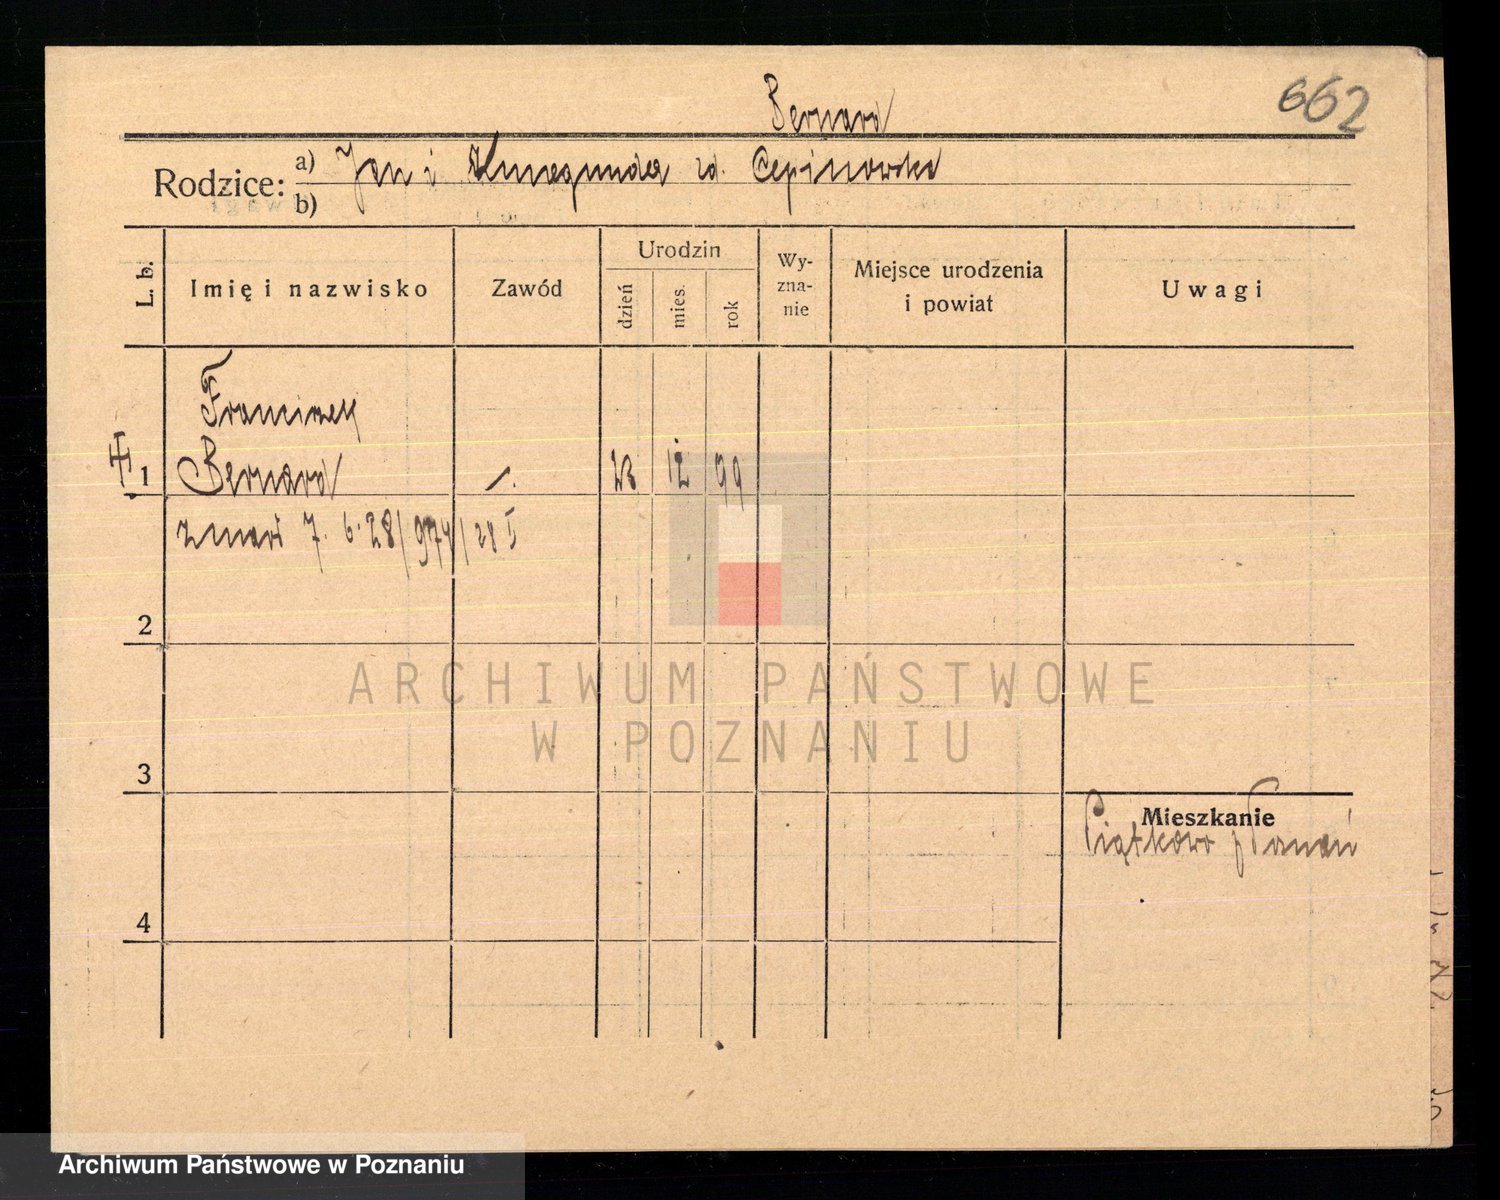 662
Bernard
Rodzice: a) Jan i Kunegunda zd. Cepinowska
b)
L. b. Imię i nazwisko Zawód Urodzin dzień mies. rok Wy-zna-nie Miejsce urodzenia i powiat Uwagi
Franciszek
1 Bernard /. 23 12 99
zmarł 7. 6. 28/974/28 I
2
ARCHIWUM PAŃSTWOWE
W POZNANIU
3
Mieszkanie
Piątkowo p/Poznań
4
Archiwum Państwowe w Poznaniu